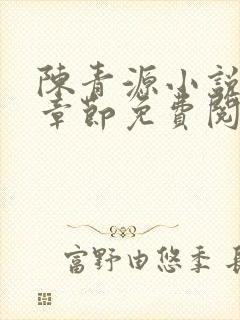 陳青源小說
章節免費閱
富野由悠季